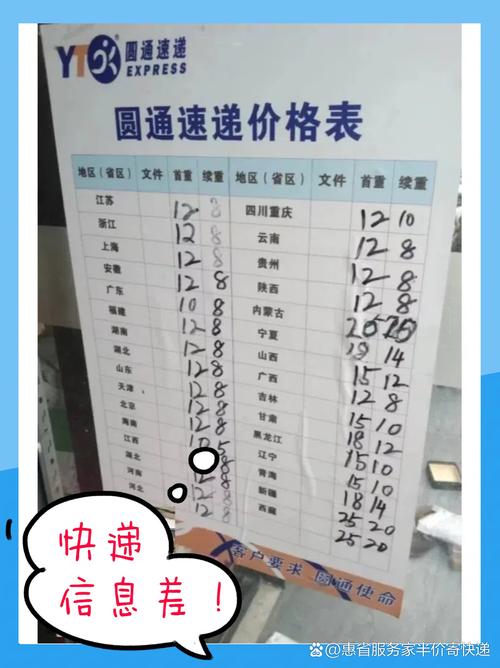 YTO 圆通速递
EXPRESS
圆通速递价格表
地区（省区） 文件 首重 续重 地区（省区） 文件 首重 续重
江苏 12 8 四川重庆 12 10
浙江 12 8 云南 12 8
上海 12 8 贵州 12 8
安徽 12 8 陕西 12 8
广东 10 8 内蒙古 25
福建 12 8 宁夏 18 14
湖南 12 8 山西 15 12
湖北 12 8 广西 12 8
山东 12 8 吉林 15 10
天津 12 8 甘肃 18 12
北京 12 8 黑龙江 15 10
海南 10 5 辽宁 15 10
江西 8 青海 18 14
湖北 12 8 新疆 25 20
河南 12 8 西藏 25 20
河北
客户要求 圆通使命
快递
信息差！
@惠省服务家半价寄快递